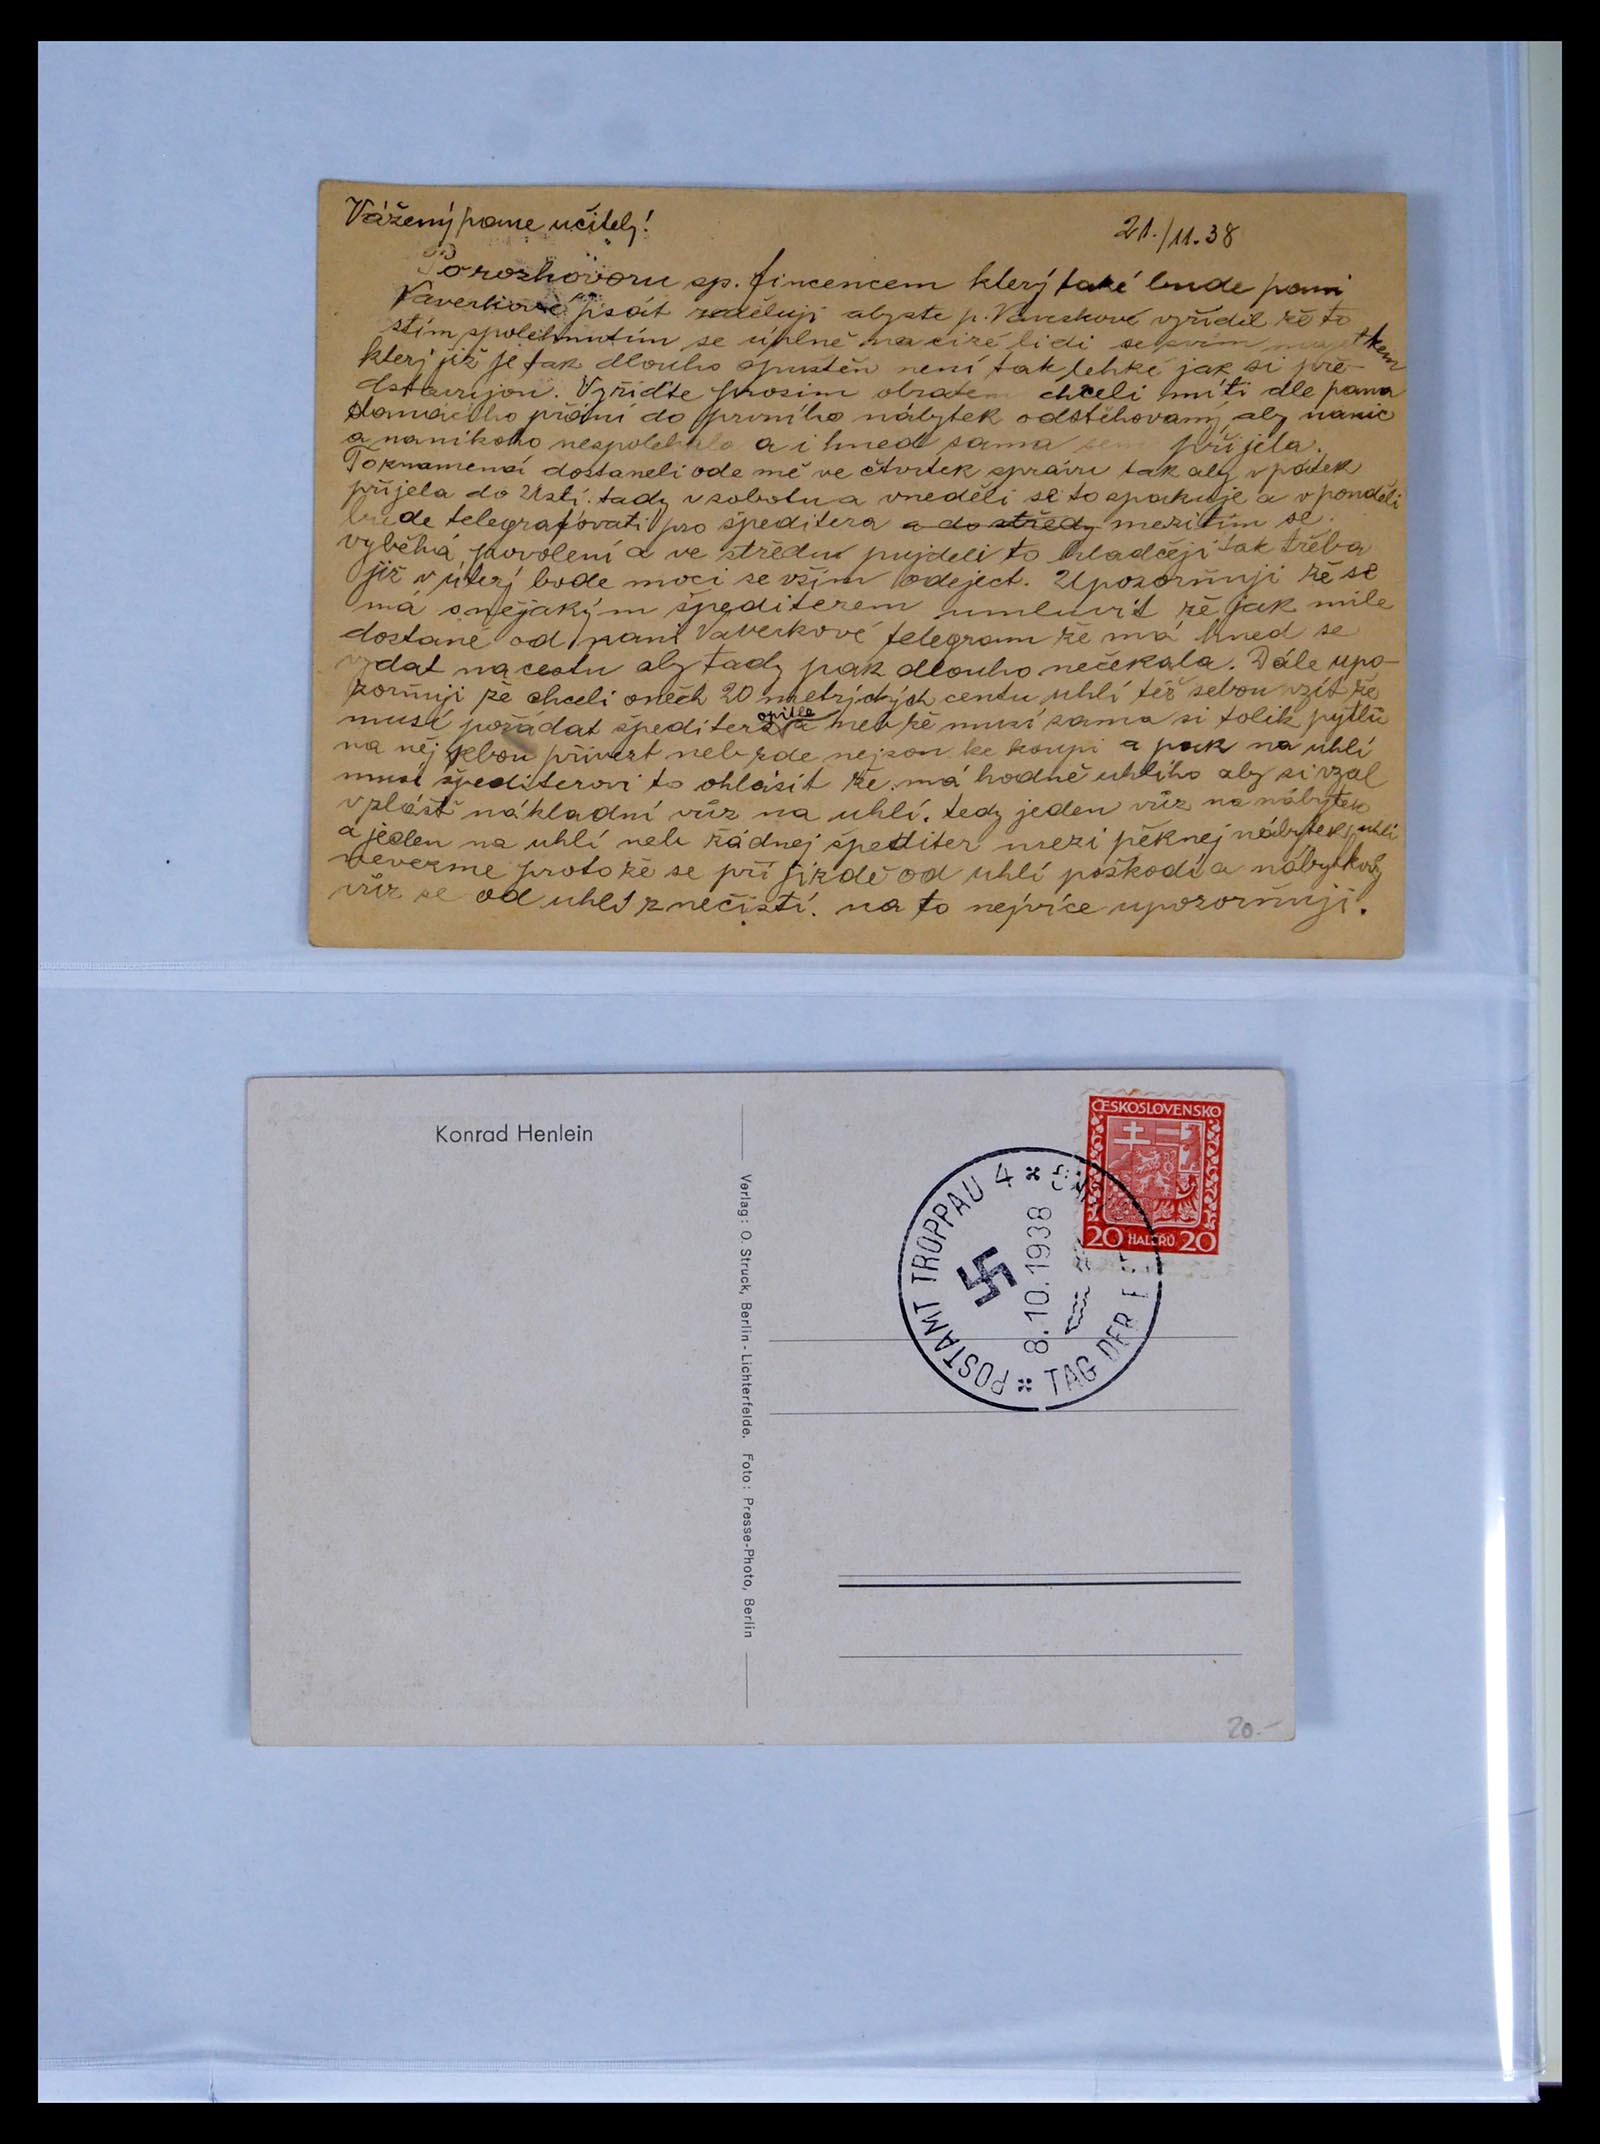 Vážený pane učitelj!
21./11.38
Po rozhovoru sp. fincencem který také bude pani
Vaverkové psát sděluji abyste p. Vaverkové vyřídil že to
stím spolehnutím se úplně na cizé lidi se svím majetkem
kterj již je tak dlouho opustěn není tak lehké jak si pře-
dstavujou. Vyřiďte prosim obratem chceli míti dle pana
domácího přání do prvního nábytek odstěhovanj aby nanic
a nanikoho nespolehala a i hned sama sem přijela.
To znamená dostaneli ode mě ve čtvrtek správu tak aby vpátek
přijela do Ústí. tady v sobotu a vneděli se to spakuje a v ponděli
bude telegrafovati pro špeditera a do středy mezitím se
vyběhá povolení a ve středu pujdeli to hladčeji tak třeba
již v úterj bude moci se vším odeject. Upozorňuji že se
má snějakým špediterem umluvit že jak mile
dostane od pani Vaverkové telegram že má hned se
vydat na cestu aby tady pak dlouho nečekala. Dále upo-
zorňuji že chceli oněch 20 metrjckých centu uhlí též sebou vzít že
musí požádat špeditera o pitle neb že musí sama si tolik pytlů
na něj sebou přivezt neb zde nejsou ke koupi a pak na uhlí
musí špediterovi to ohlásit že má hodně uhlího aby si vzal
vplášť nákladní vůz na uhlí. tedy jeden vůz na nábytek
a jeden na uhlí neb žádnej špediter mezi pěknej nábytek uhlí
nevezme protože se při jízdě od uhlí poškodí a nábytkový
vůz se od uhlí znečistí. na to nejvíce upozorňuji.
Konrad Henlein
Verlag: O. Struck, Berlin-Lichterfelde. Foto: Presse-Photo, Berlin
ČESKOSLOVENSKO
20 HALÉŘŮ 20
POSTAMT TROPPAU 4
8.10.1938
TAG DER
20.-